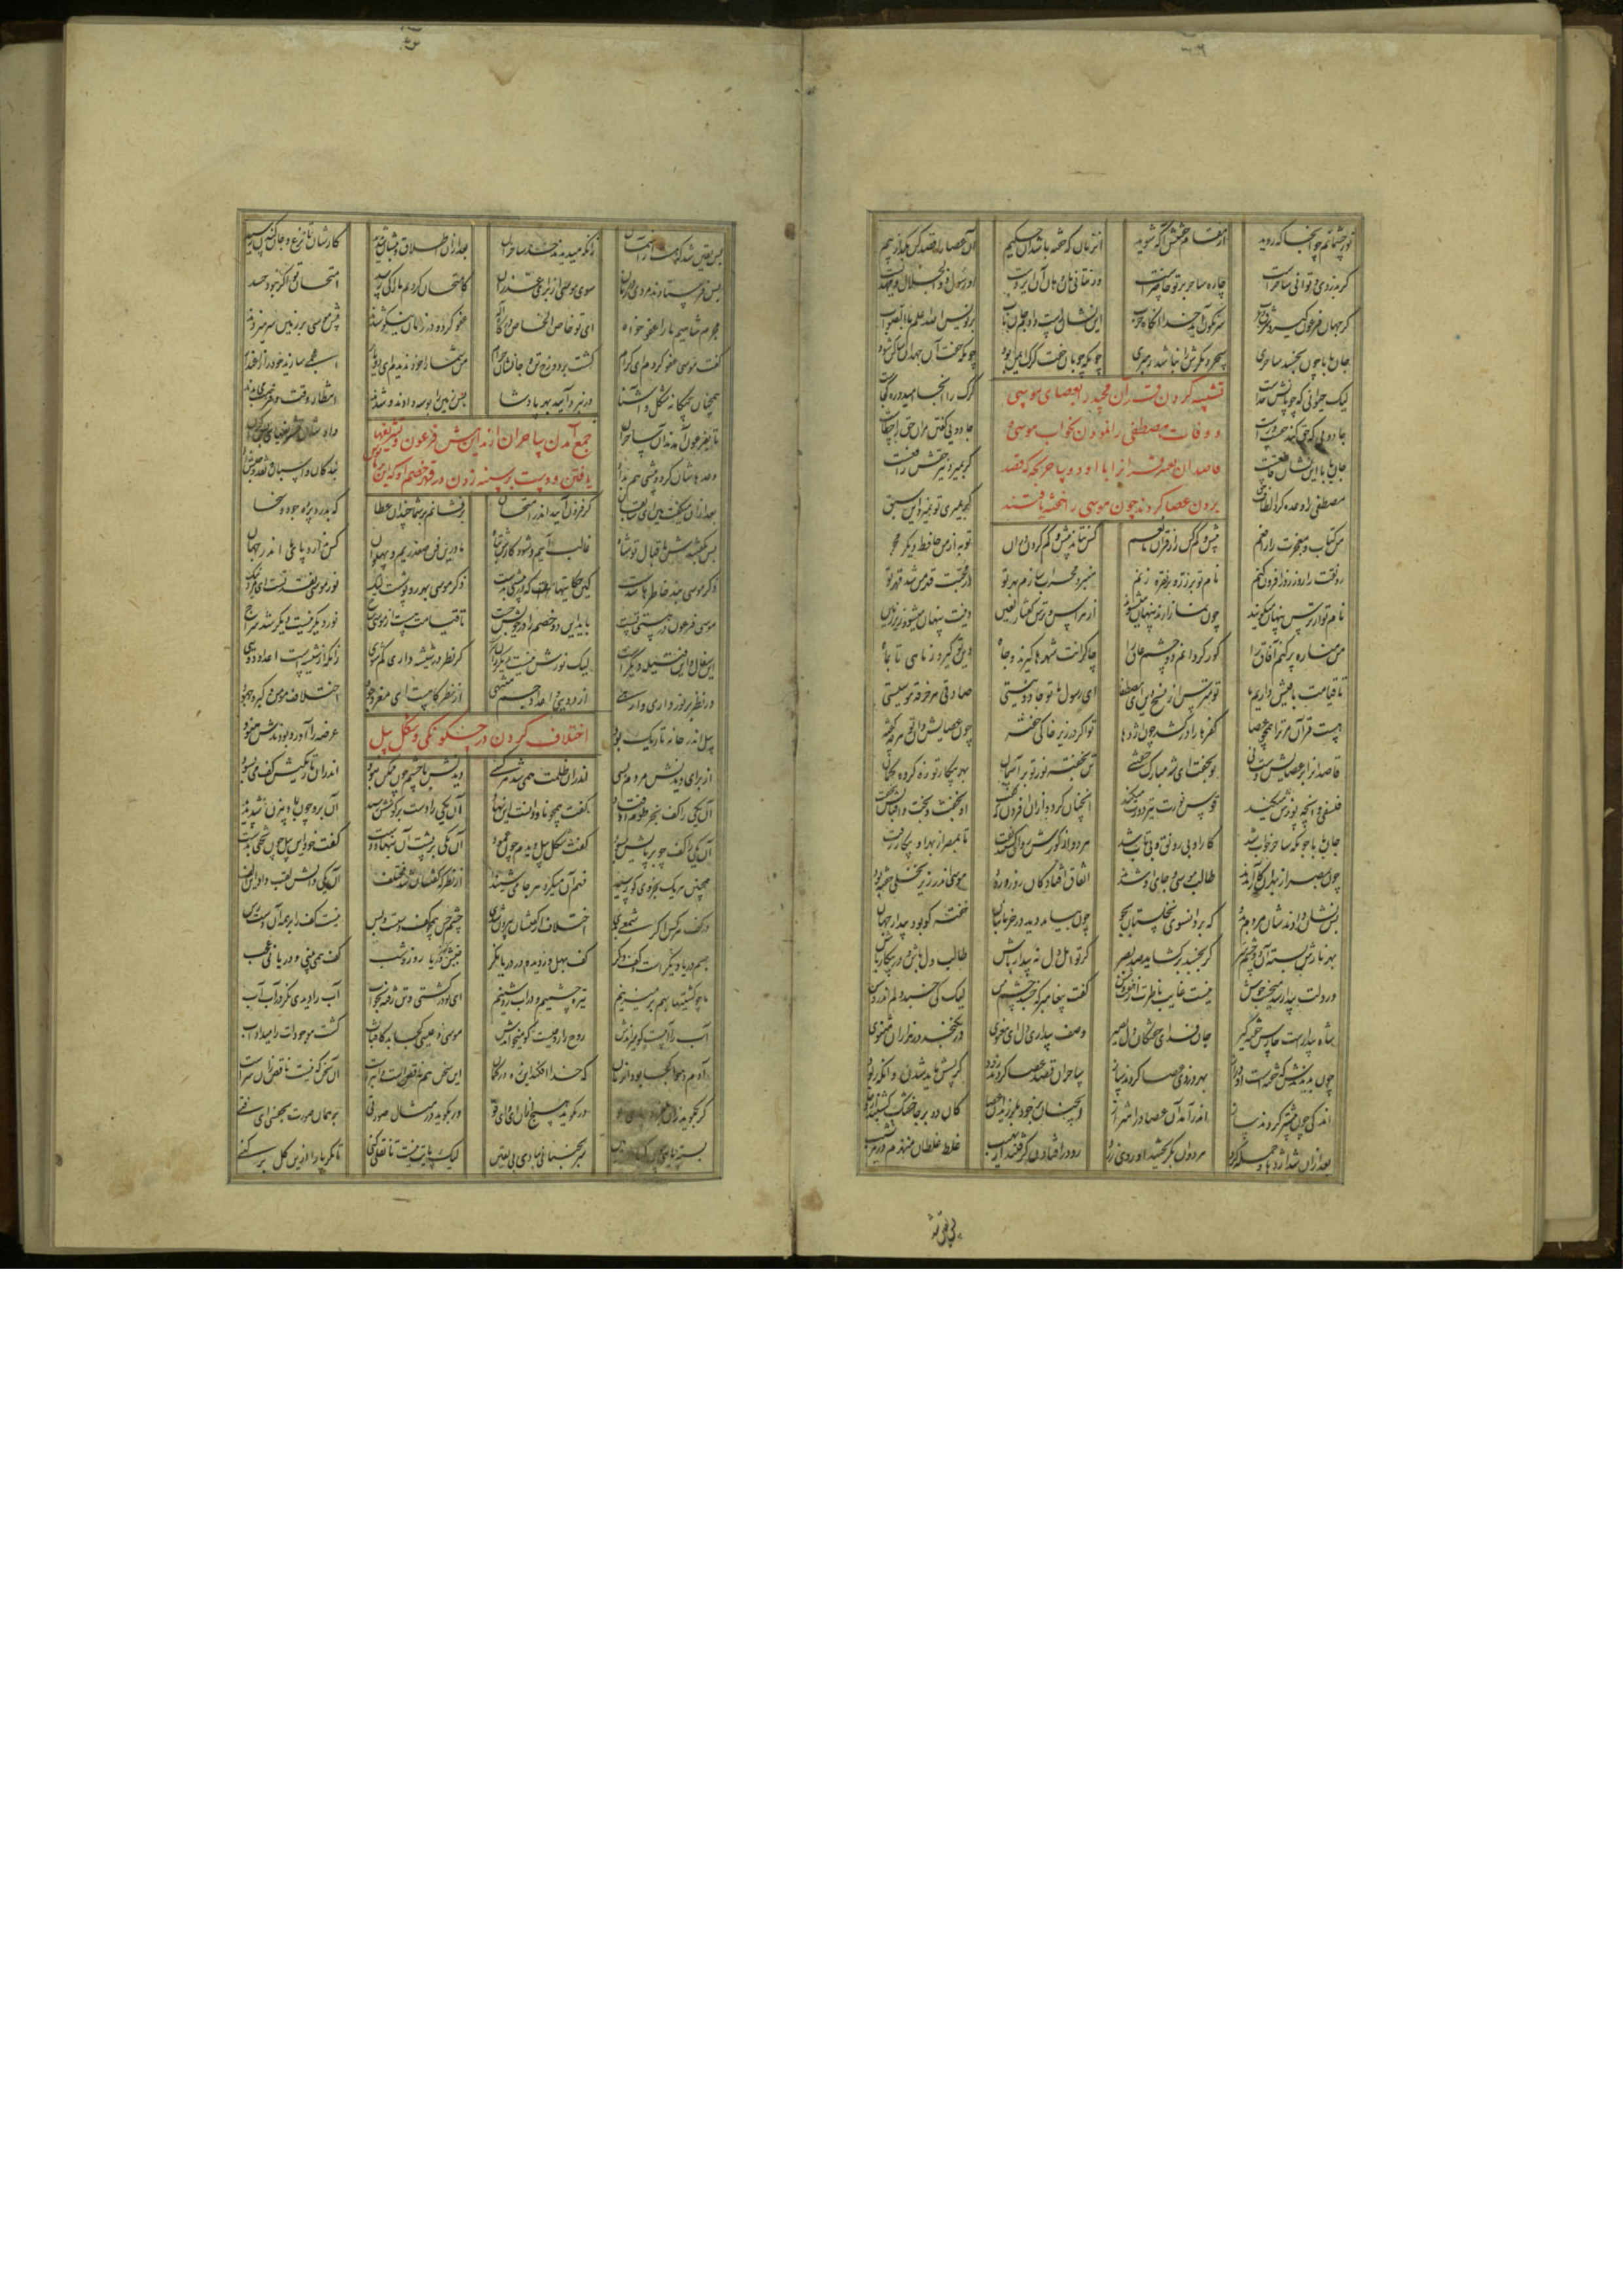 نور چشمانم چو آنجا که روید از مقام خفتنش آگه شوید آن زمان که خفته باشد آن حکیم آن عصا را قصد کن بگذار بیم
گر بدزدی و توانی ساحرست چاره ساحر بر تو حاضرست ور نتانی هان و هان آن ایزدیست او رسول ذوالجلال و مهتدیست
گر جهان فرعون گیرد شرق و غرب سرنگون آید خدا آنگاه حرب این نشان راست دادم جان باب بر نویس الله اعلم بالصواب
جان بابا چون بخسبد ساحری سحر و مکرش را نباشد رهبری چونکه چوپان خفت گرگ ایمن بود چونکه خفت آن جهد آن ساکن شود
لیک حیوانی که چوپانش خداست گرگ را آنجا امید و ره کجاست
تشبیه کردن قرآن مجید را بعصای موسی
جادویی که حق کند حقست و راست جادویی گفتن مر آن حق را خطاست
و وفات مصطفی را نمودن بخواب موسی و
جان بابا این نشان قاطعست گر بمیرد نیز حقش رافعست
قاصدان تغییر قرآن را با او دو ساحر بچه که قصد
مصطفی را وعده کرد الطاف حق گر بمیری تو نمیرد این سبق
بردن عصا کردند چون موسی را خفته یافتند
من کتاب و معجزت را رافعم بیش و کم کن را ز قرآن مانعم کس نتاند بیش و کم کردن در آن تو به از من حافظ دیگر مجو
رونقت را روز روز افزون کنم نام تو بر زر و بر نقره زنم منبر و محراب سازم بهر تو در محبت قهر من شد قهر تو
نام تو از ترس پنهان میگویند چون نماز آرند پنهان میشوند از هراس و ترس کفار لعین دینت پنهان میشود زیر زمین
من مناره پر کنم آفاق را کور گردانم دو چشم عاق را چاکرانت شهرها گیرند و جاه دین تو گیرد ز ماهی تا بماه
تا قیامت باقیش داریم ما تو مترس از نسخ دین ای مصطفی ای رسول ما تو جادو نیستی صادقی هم خرقه موسیستی
هست قرآن مر ترا همچون عصا کفرها را در کشد چون اژدها تو اگر در زیر خاکی خفته چون عصایش دان تو هر چه گفته
قاصدان را بر عصایش دست نی تو بخسب ای شه مبارک خفتنی تن بخفته نور تو بر آسمان بهر پیکار تو زه کرده کمان
فلسفی و آنچه پوزش میکند قوس نورت تیردوزش میکند آنچنان کرد و از آن افزون که گفت او بخفت و بخت و اقبالش نخفت
جان بابا چونکه ساحر خواب شد کار او بی رونق و بی تاب شد هر دو از گورش روان گشتند تفت تا بمصر از بهر او پیکار زفت
چون بمصر از بهر آن کار آمدند طالب موسی و جای او شدند اتفاق افتاد کان روز ورود موسی اندر زیر نخلی خفته بود
پس نشان دادندشان مردم بدو که برو آنسوی نخلستان بجو چون بیامد دید در خرمابنان خفته کو بود بیدار جهان
بهر نازش بسته او دو چشم سر گر بخسبد برگشاید صد بصر گر تو اهل دل نه بیدار باش طالب دل باش و در پیکار باش
ور دلت بیدار شد میخسب خوش نیست غایب ناظرت از هفت و شش گفت پیغامبر که خسبد چشم من لیک کی خسبد دلم اندر وسن
شاه بیدارست حارس خفته گیر جان فدای خفتگان دل بصیر وصف بیداری دل ای معنوی در نگنجد در هزاران مثنوی
چون بدیدندش که خفتست او دراز بهر دزدی عصا کردند ساز ساحران قصد عصا کردند زود کز پسش باید شدن وانگه ربود
اندکی چون پیشتر کردند ساز اندر آمد آن عصا در اهتزاز آنچنان بر خود بلرزید آن عصا کان دو بر جا خشک گشتند از وجا
بعد از آن شد اژدها و حمله کرد هر دوان بگریختند و روی زرد رو در افتادن گرفتند از نهیب غلط غلطان منهزم در هر نشیب
پس یقین
پس یقین شد که هست از آسمان زانکه میدیدند حد ساحران بعد از آن اطلاق و تبشان شد پدید کارشان تا نزع و جان کندن رسید
پس فرستادند مردی در زمان سوی موسی از برای عذر آن کامتحان کردیم ما را کی رسد امتحان تو اگر نبود حسد
مجرم شاهیم ما را عفو خواه ای تو خاص الخاص درگاه اله عفو کرد و در زمان نیکو شدند پیش موسی بر زمین سر میزدند
گفت موسی عفو کردم ای کرام گشت بر دوزخ تن و جانتان حرام من شما را خود ندیدم ای دو یار اعجمی سازید خود را ز اعتذار
همچنان بیگانه شکل و آشنا در نبرد آیید بهر پادشا پس زمین را بوسه دادند و شدند انتظار وقت و فرصت میبدند
جمع آمدن ساحران از مداین پیش فرعون و تشریفها
تا بفرعون آمدند آن ساحران دادشان تشریفهای بس گران
یافتن و دست بر سینه زدن در قهر خصم او که این بر ما نویس
وعده هاشان کرد و پیشین هم بداد بندگان و اسبان و نقد و جنس و زاد
بعد از آن میگفت هین ای سابقان گر فزون آیید اندر امتحان بر فشانم بر شما چندان عطا که بدرد پرده جود و سخا
پس بگفتندش باقبال تو شاه غالب آییم و شود کارش تباه ما درین فن صفدریم و پهلوان کس ندارد پای ما اندر جهان
ذکر موسی بند خاطرها شدست کین حکایتهاست که پیشین بدست ذکر موسی بهر روپوشست لیک نور موسی نقد تست ای مرد نیک
موسی و فرعون در هستی تست باید این دو خصم را در خویش جست تا قیامت هست از موسی نتاج نور دیگر نیست دیگر شد سراج
این سفال و این فتیله دیگرست لیک نورش نیست دیگر زان سرست گر نظر در شیشه داری گم شوی زانکه از شیشه است اعداد دوی
ور نظر بر نور داری وارهی از دویی و اعداد جسم منتهی از نظرگاهست ای مغز وجود اختلاف مومن و گبر و جهود
اختلاف کردن در چگونگی و شکل پیل
پیل اندر خانه تاریک بود عرضه را آورده بودندش هنود
از برای دیدنش مردم بسی اندر آن ظلمت همی شد هر کسی دیدنش با چشم چون ممکن نبود اندر آن تاریکیش کف می بسود
آن یکی را کف بخرطوم اوفتاد گفت همچون ناودانست این نهاد آن یکی را دست بر گوشش رسید آن برو چون بادبیزن شد پدید
آن یکی را کف چو بر پایش بسود گفت شکل پیل دیدم چون عمود آن یکی بر پشت او بنهاد دست گفت خود این پیل چون تختی بدست
همچنین هر یک بجزوی که رسید فهم آن میکرد هر جا میشنید از نظرگه گفتشان شد مختلف آن یکی دالش لقب داد این الف
در کف هر کس اگر شمعی بدی اختلاف از گفتشان بیرون شدی چشم حس همچون کف دستست و بس نیست کف را بر همه آن دست رس
چشم دریا دیگرست و کف دگر کف بهل وز دیده دریا نگر جنبش کفها ز دریا روز و شب کف همی بینی و دریا نی عجب
ما چو کشتیها بهم بر میزنیم تیره چشمیم و در آب روشنیم ای تو در کشتی تن رفته بخواب آب را دیدی نگر در آب آب
آب را آبیست کو میراندش روح را روحیست کو میخواندش موسی و عیسی کجا بد کافتاب کشت موجودات را میداد آب
آدم و حوا کجا بود آن زمان که خدا افکند این زه در کمان این سخن هم ناقص است و ابترست آن سخن که نیست ناقص آن سرست
گر بگوید زان بلغزد پای تو ور نگوید هیچ از آن ای وای تو ور بگوید در مثال صورتی بر همان صورت بچفسی ای فتی
بسته پایی چون گیا اندر زمین سر بجنبانی ببادی بی یقین لیک پایت نیست تا نقلی کنی تا مگر پا را ازین گل برکنی